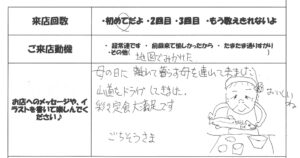 来店回数
・初めてだよ ・2回目 ・3回目 ・もう数えきれないよ
ご来店動機
・超常連です ・前回来て楽しかったから ・たまたま通りすがり
・その他( 地図でみかけた )
お店へのメッセージや、イラストを書いて楽しんでください♪
母の日に 離れて暮らす母を連れて来ました。
山道をドライブして
彩り定食 大満足です
ごちそうさま
おいしいね